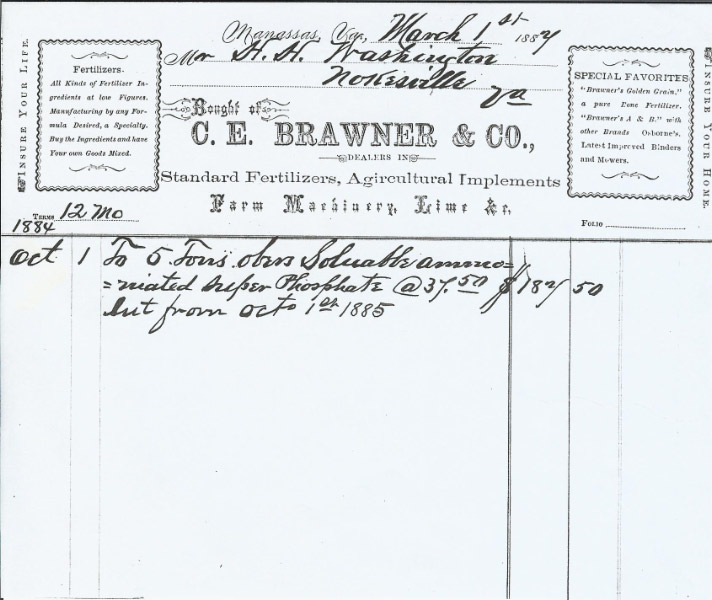 Manassas, Va., March 1st 1887
Mr H. H. Washington
Nokesville
Va
INSURE YOUR LIFE.
Fertilizers.
All Kinds of Fertilizer In-
gredients at low Figures.
Manufacturing by any For-
mula Desired, a Specialty.
Buy the Ingredients and have
Your own Goods Mixed.
Bought of
C. E. BRAWNER & CO.,
DEALERS IN
Standard Fertilizers, Agircultural Implements
Farm Machinery, Lime &c,
SPECIAL FAVORITES
"Brawner's Golden Grain,"
a pure Bone Fertilizer.
"Brawner's A & B." with
other Brands Osborne's.
Latest Improved Binders
and Mowers.
INSURE YOUR HOME.
TERMS 12 Mo
FOLIO
1884
Oct 1 To 5 Tons obers Soluable ammo=
=niated Super Phosphate @ 37.50 $ 187 50
Int from Octo 1st 1885